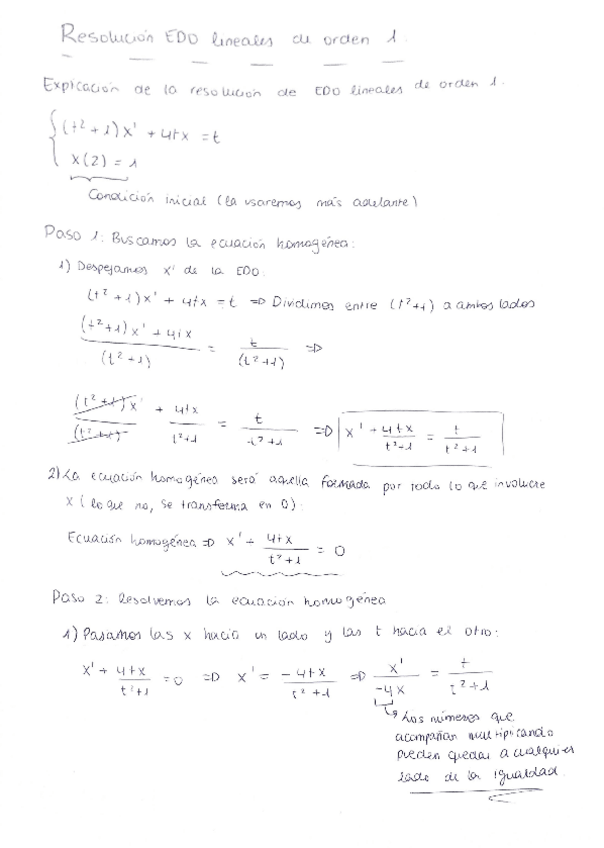 Resolución EDO lineales de orden 1.
Expicación de la resolución de EDO lineales de orden 1.
{ (t² + 1) x' + 4tx = t
x(2) = 1
Condición inicial (la usaremos más adelante)
Paso 1: Buscamos la ecuación homogénea:
1) Despejamos x' de la EDO:
(t² + 1) x' + 4tx = t => Dividimos entre (t² + 1) a ambos lados
((t² + 1) x' + 4tx) / (t² + 1) = t / (t² + 1) =>
(t² + 1) x' / (t² + 1) + 4tx / (t² + 1) = t / (t² + 1) => x' + 4tx / (t² + 1) = t / (t² + 1)
2) La ecuación homogénea será aquella formada por todo lo que involucre
x (lo que no, se transforma en 0):
Ecuación homogénea => x' + 4tx / (t² + 1) = 0
Paso 2: Resolvemos la ecuación homogénea
1) Pasamos las x hacia un lado y las t hacia el otro:
x' + 4tx / (t² + 1) = 0 => x' = -4tx / (t² + 1) => x' / -4x = t / (t² + 1)
Los números que
acompañan multiplicando
pueden quedar a cualquier
lado de la igualdad.